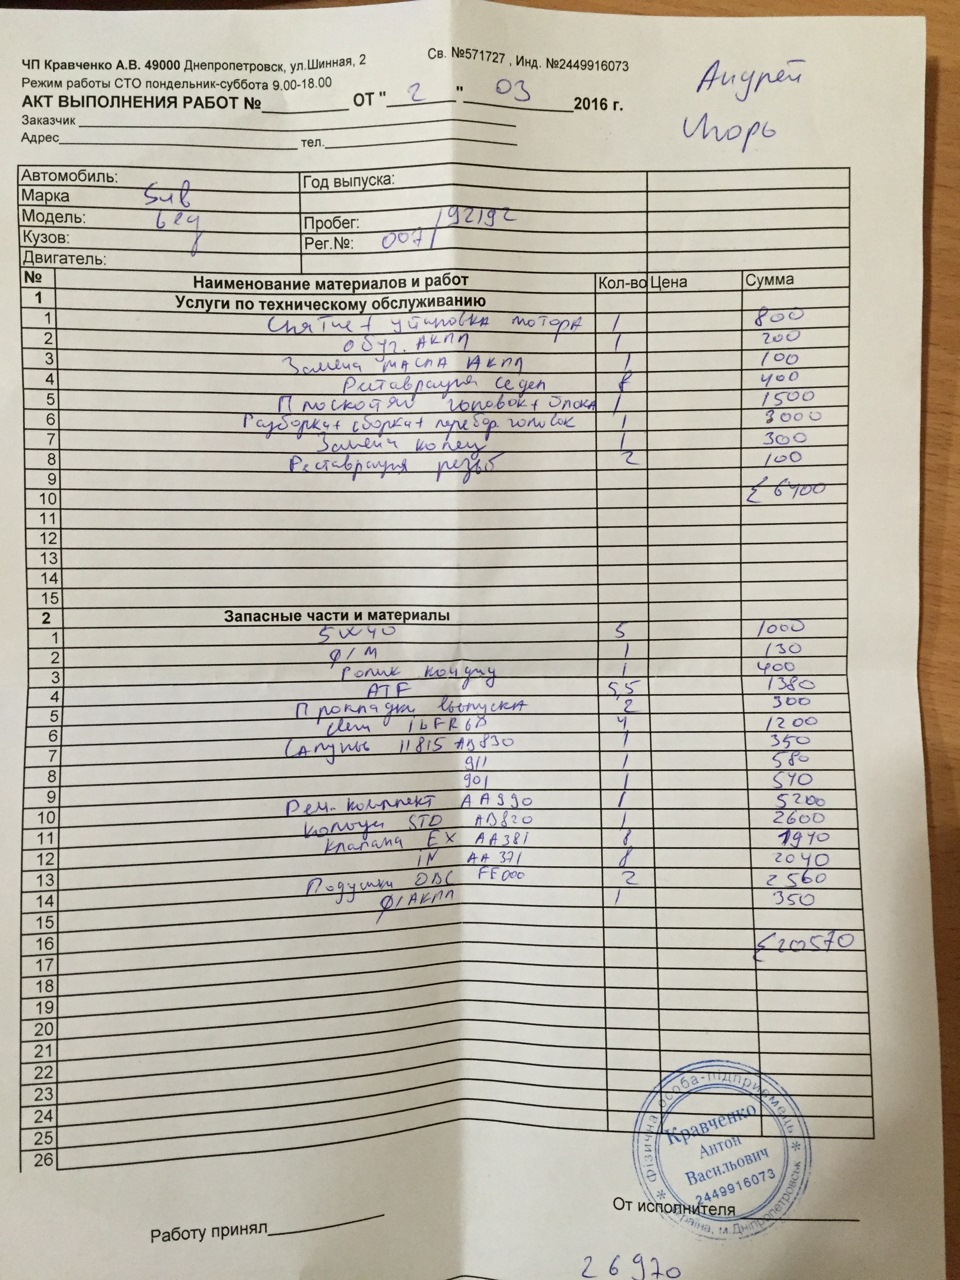 ЧП Кравченко А.В. 49000 Днепропетровск, ул.Шинная, 2 Св. №571727 , Инд. №2449916073
Режим работы СТО пондельник-суббота 9.00-18.00
АКТ ВЫПОЛНЕНИЯ РАБОТ №_________ ОТ "2" 03 2016 г.
Андрей
Игорь
Заказчик
Адрес тел.
Автомобиль: Год выпуска:
Марка
Модель: Пробег: 192192
Кузов: Рег.№: 007
Двигатель:
№ Наименование материалов и работ Кол-во Цена Сумма
1 Услуги по техническому обслуживанию
1 Снятие + установка мотора 1 800
2 АКПП 1 200
3 Замена масла АКПП 1 100
4 Реставрация седел 8 400
5 Плоскотяж головок + блока 1 1500
6 Разборка + сборка + перебор. головок 1 3000
7 Замена колец 1 300
8 Реставрация резьб 2 100
9
10 Σ 6400
11
12
13
14
15
2 Запасные части и материалы
1 5W40 5 1000
2 Ф/М 1 130
3 Ролик кондиц 1 400
4 ATF 5,5 1380
5 Прокладки выпуска 2 300
6 4 1200
7 Сапуны 11815 AB830 1 350
8 911 1 580
9 901 1 540
10 Рем. комплект AA990 1 5200
11 Кольца STD AB820 1 2600
12 Клапана EX AA381 8 1940
13 IN AA371 8 2040
14 Подушки ДВС FF000 2 2560
15 Ф/АКПП 1 350
16 Σ 20570
17
18
19
20
21
22
23
24
25
26
Фізична особа-підприємець
Кравченко
Антон
Васильович
2449916073
Україна, м.Дніпропетровськ
Работу принял От исполнителя
26970